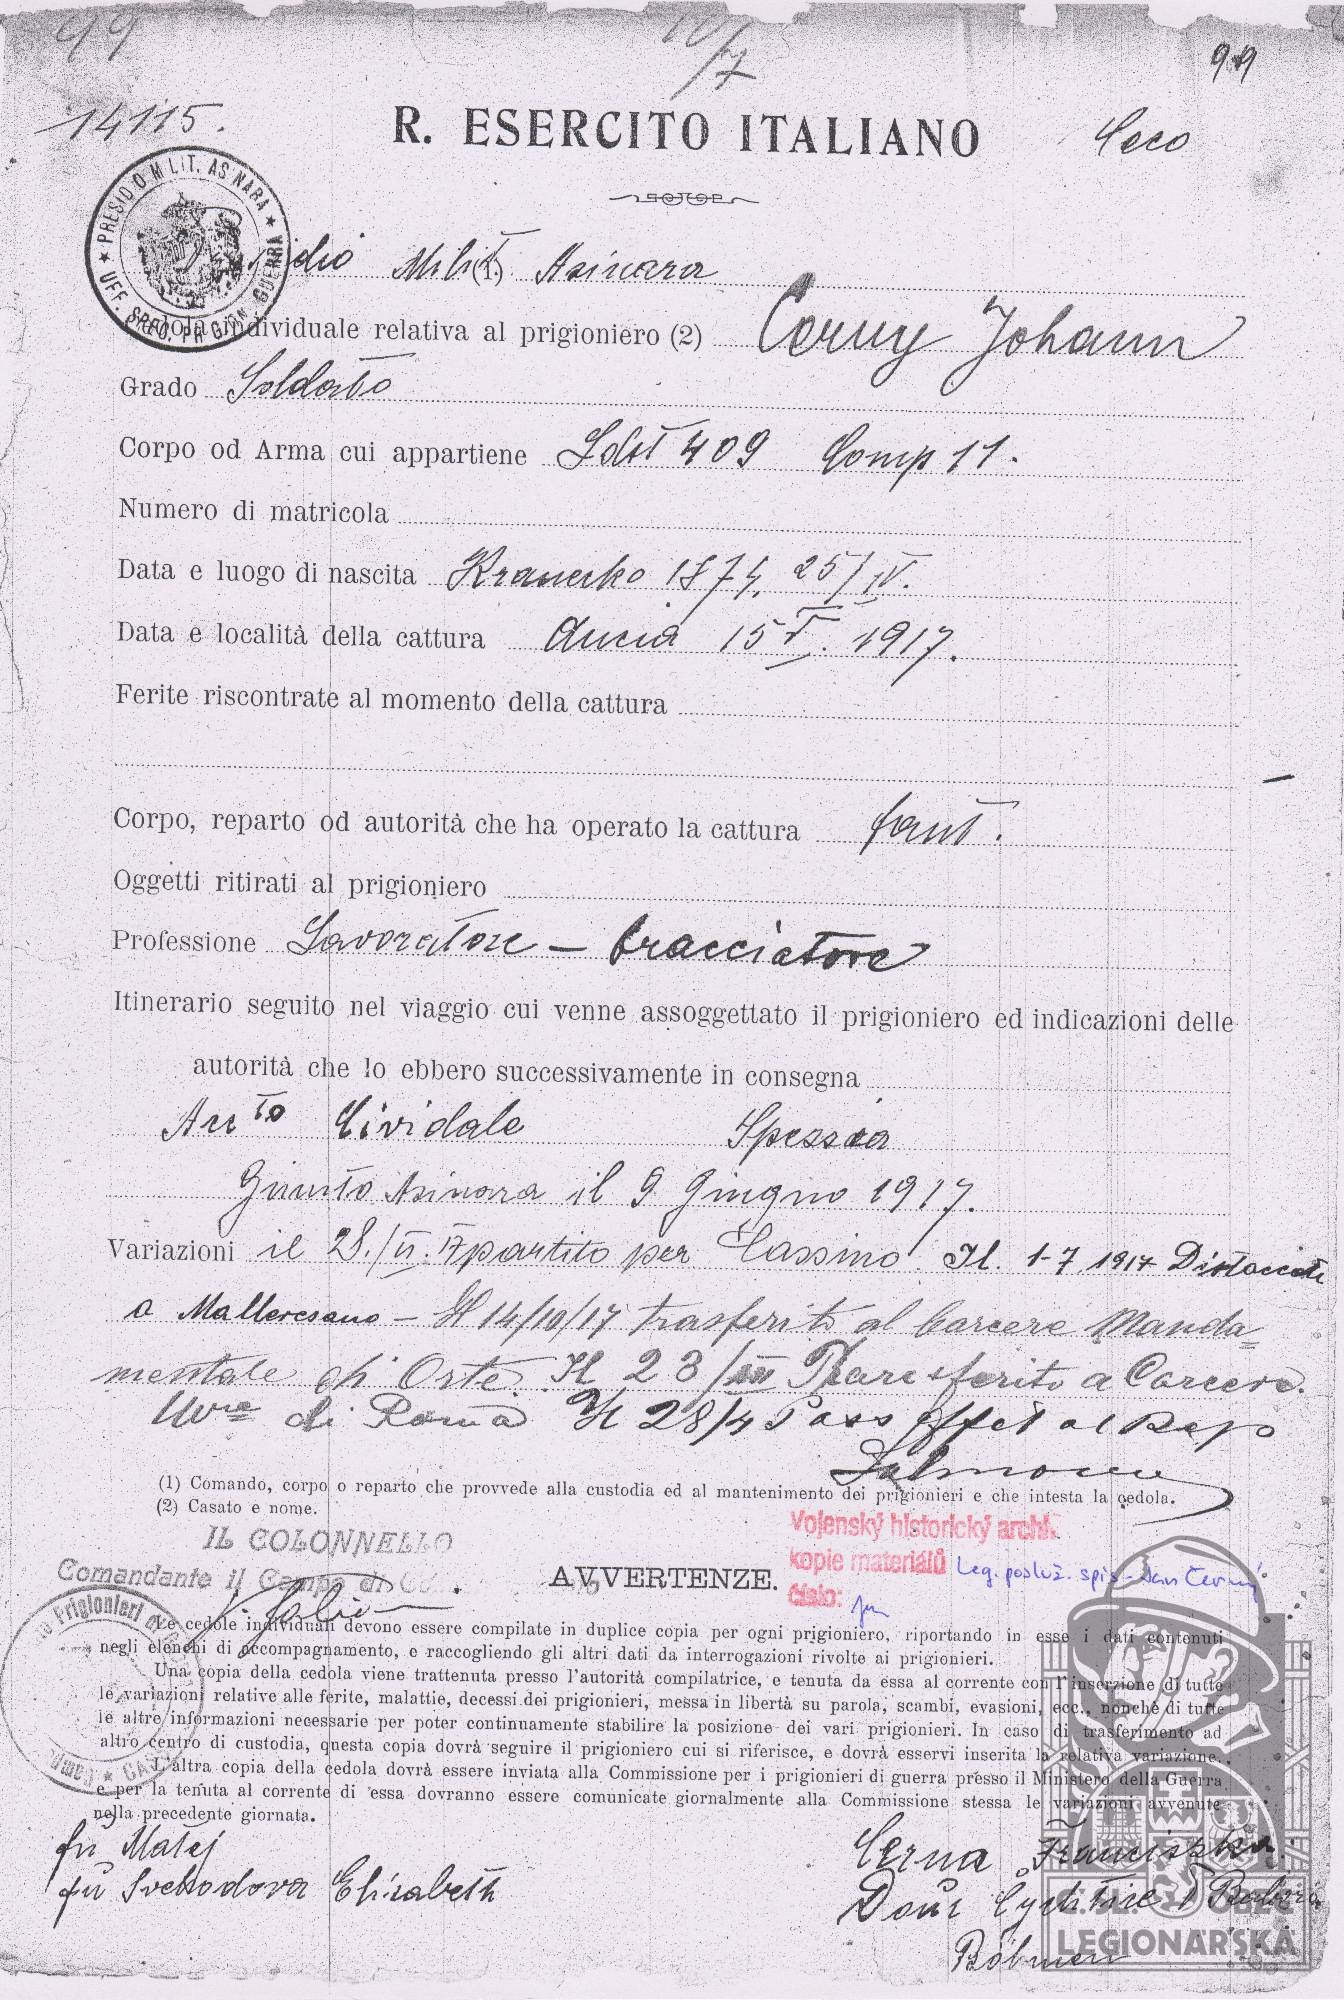 99
10/7
99
14115.
R. ESERCITO ITALIANO
Ceco
PRESIDIO MILIT. ASINARA
UFF. SPED. PRIGION. GUERRA
Milit. (1.) Asinara
Cedola individuale relativa al prigioniero (2) Cerny Johann
Grado Soldato
Corpo od Arma cui appartiene Ldst 409 Comp 11.
Numero di matricola
Data e luogo di nascita 1874. 25/IV.
Data e località della cattura 15 V. 1917.
Ferite riscontrate al momento della cattura
Corpo, reparto od autorità che ha operato la cattura fant.
Oggetti ritirati al prigioniero
Professione Lavoratore – bracciatore
Itinerario seguito nel viaggio cui venne assoggettato il prigioniero ed indicazioni delle
autorità che lo ebbero successivamente in consegna
Cividale Spessia
Giunto Asinara il 9 Giugno 1917.
Variazioni il 28./VI. 17 partito per Cassino. Il. 1-7 1917 Distaccato
a – Il 14/10/17 trasferito al Carcere Manda-
mentale di Orte. Il 23/III Trasferito a Carcere.
di Roma Il 28/4 Pass effet al Dep
(1) Comando, corpo o reparto che provvede alla custodia ed al mantenimento dei prigionieri e che intesta la cedola.
(2) Casato e nome.
IL COLONNELLO
Comandante il Campo di
Vojenský historický archiv.
kopie materiálů Leg. posluž. spis - Jan Černý
číslo:
AVVERTENZE.
Prigionieri di
Le cedole individuali devono essere compilate in duplice copia per ogni prigioniero, riportando in esse i dati contenuti
negli elenchi di accompagnamento, e raccogliendo gli altri dati da interrogazioni rivolte ai prigionieri.
Una copia della cedola viene trattenuta presso l'autorità compilatrice, e tenuta da essa al corrente con l'inserzione di tutte
le variazioni relative alle ferite, malattie, decessi dei prigionieri, messa in libertà su parola, scambi, evasioni, ecc., nonchè di tutte
le altre informazioni necessarie per poter continuamente stabilire la posizione dei vari prigionieri. In caso di trasferimento ad
altro centro di custodia, questa copia dovrà seguire il prigioniero cui si riferisce, e dovrà esservi inserita la relativa variazione.
L'altra copia della cedola dovrà essere inviata alla Commissione per i prigionieri di guerra presso il Ministero della Guerra
e per la tenuta al corrente di essa dovranno essere comunicate giornalmente alla Commissione stessa le variazioni avvenute
nella precedente giornata.
fu Matej
fu Svobodova Elizabeth
Cerna Franciska
Böhmen
OBEC
LEGIONÁŘSKÁ